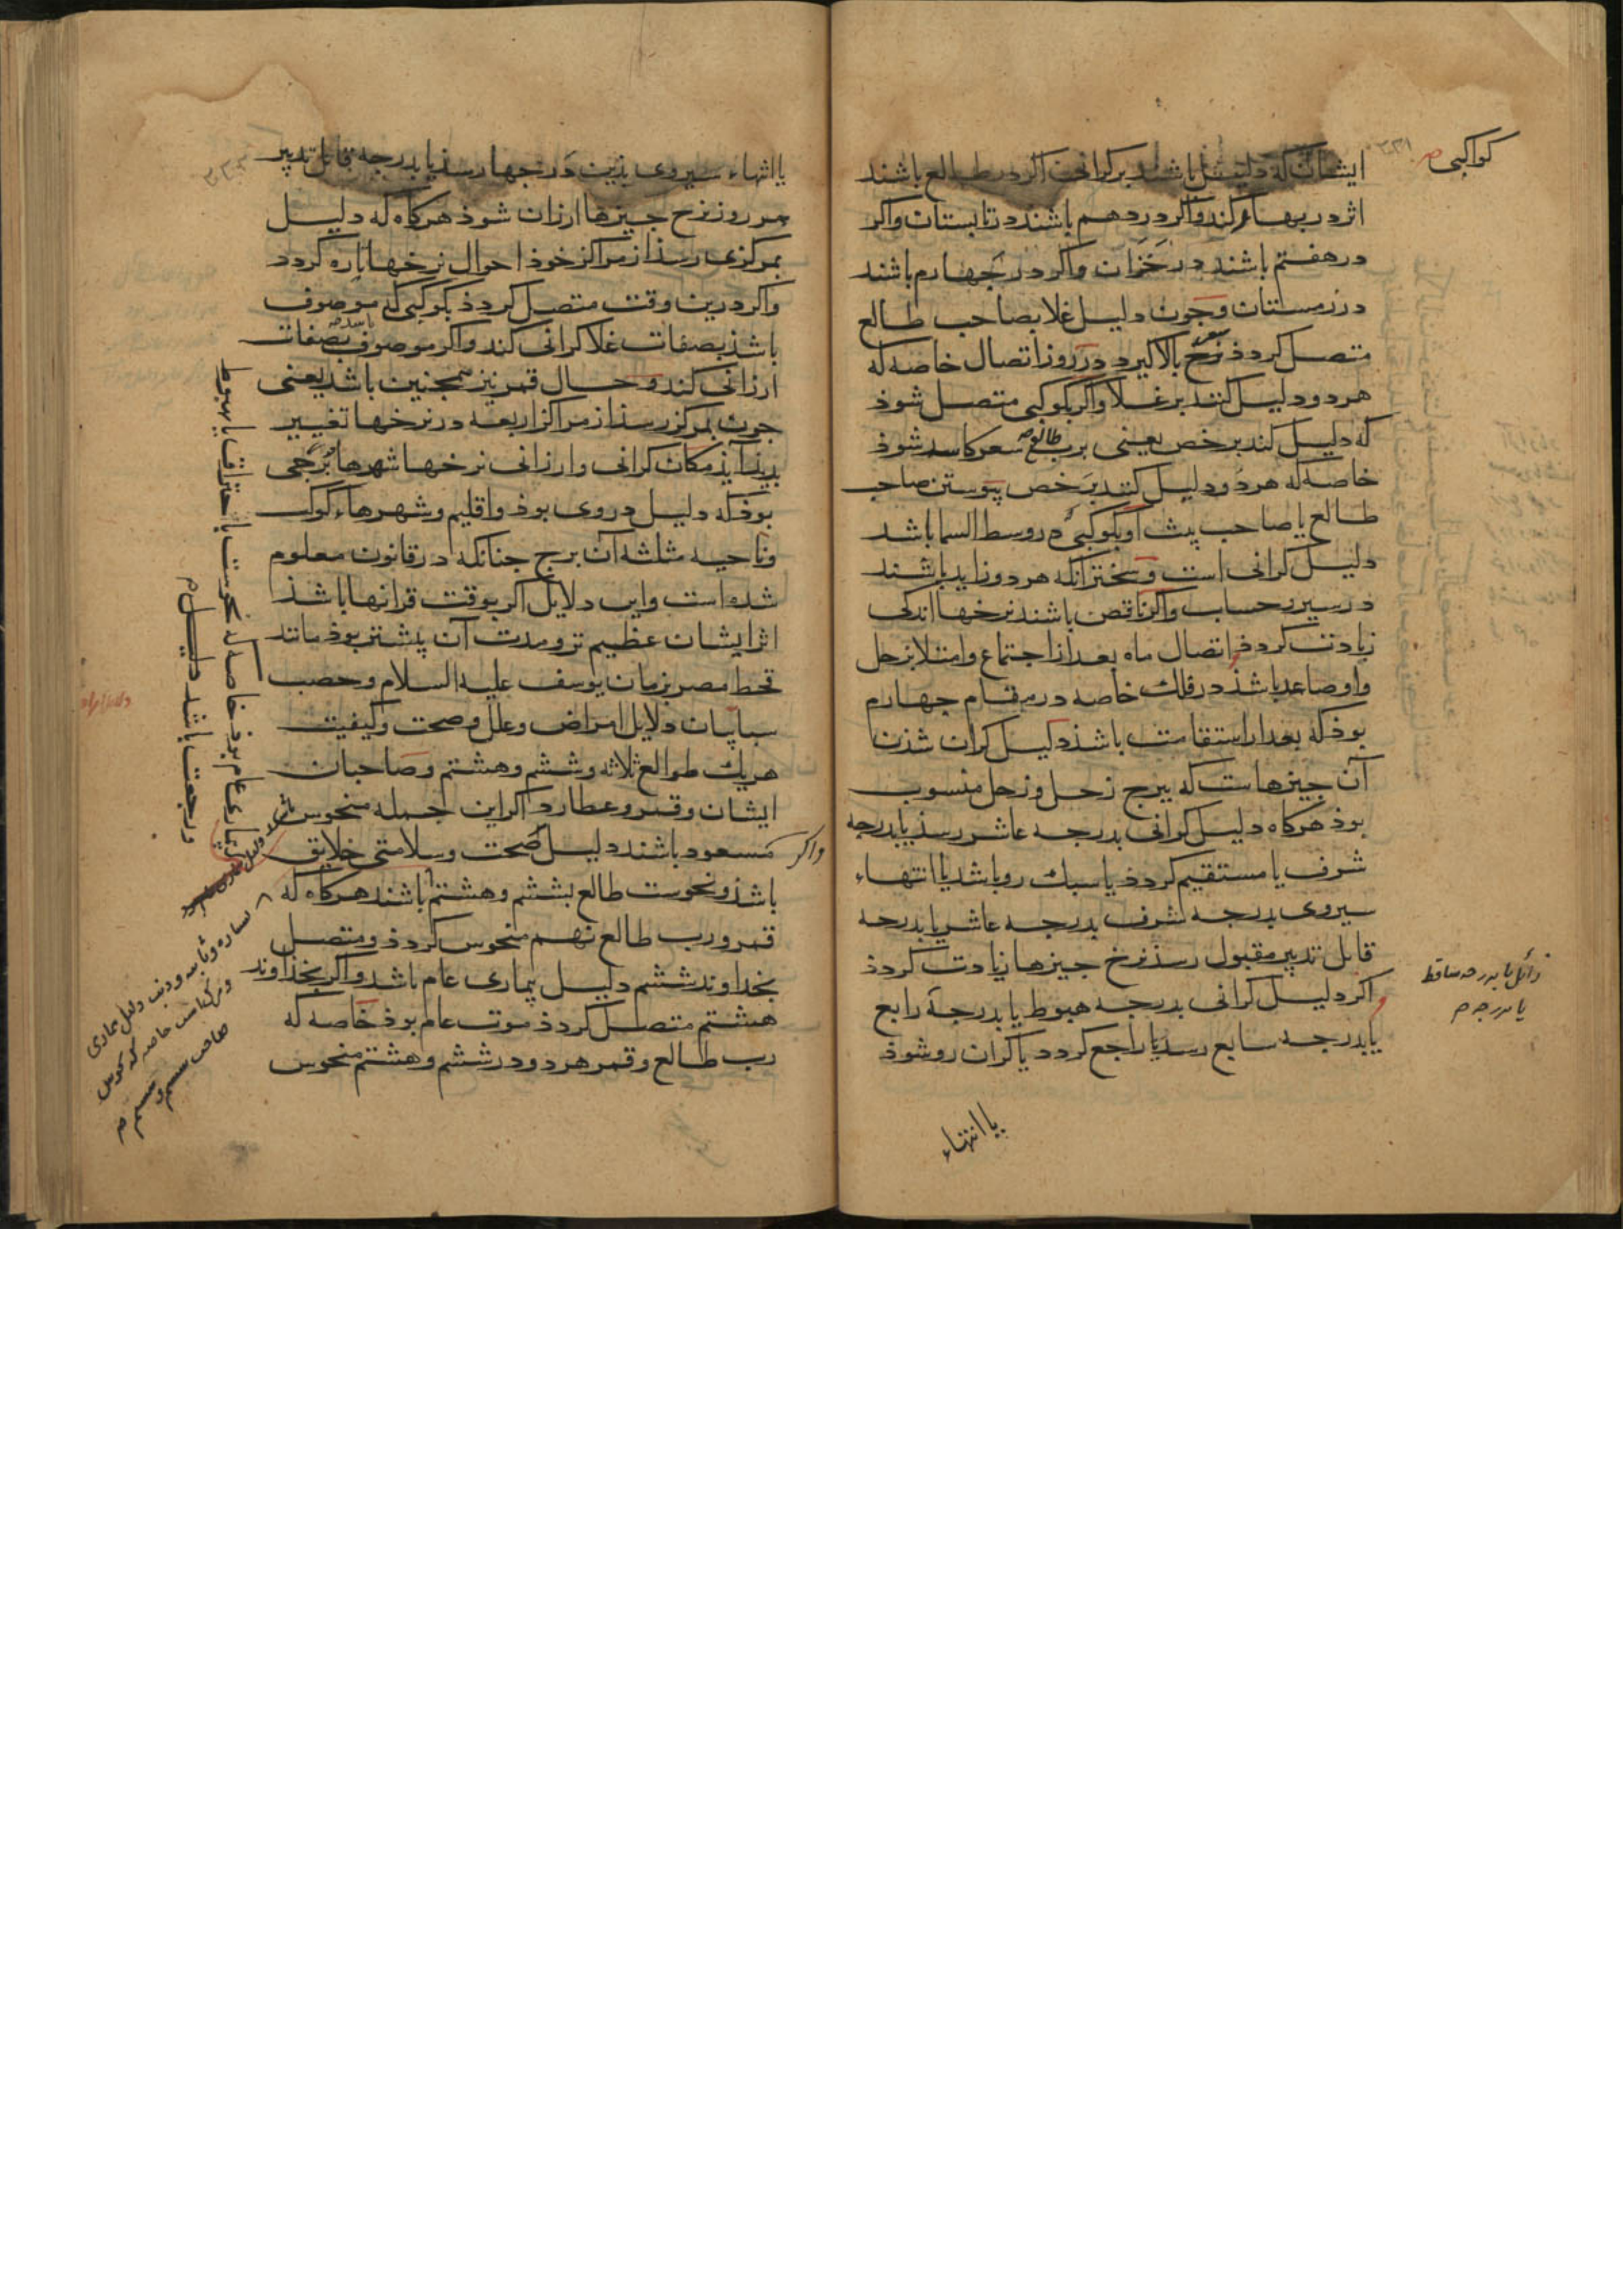 کواکبی
ایشان که دلیل باشند بر کرانی اکر در طالع باشند
اثر در بهار کند و اکر در دهم باشند در تابستان و اکر
در هفتم باشند در خزان و اکر در چهارم باشند
در زمستان و چون دلیل غلا بصاحب طالع
متصل کردذ نرخ بالا کیرد در روز اتصال خاصه که
هر دو دلیل کنند بر غلا و اکر بکوکبی متصل شوذ
که دلیل کند بر خص یعنی برب طالع سعر کاسد شوذ
خاصه که هر دو دلیل کنند بر خص پیوستن صاحب
طالع یا صاحب بیت او بکوکبی در وسط السما باشد
دلیل کرانی است و سختر انکه هر دو زاید باشند
در سیر و حساب و اکر ناقص باشند نرخها اندکی
زیادت کردذ و اتصال ماه بعد از اجتماع و امتلا بزحل
و او صاعد باشذ در فلک خاصه در مقام چهارم
بوذ که بعد از استقامت باشذ دلیل کران شذن
آن چیزهاست که ببرج زحل و زحل منسوب
بوذ هرکاه دلیل کرانی بدرجه عاشر رسذ یا بدرجه
شرف یا مستقیم کردذ یا سبک رو باشد یا انتهاء
سیر وی بدرجه شرف بدرجه عاشر یا بدرجه
قابل تدبیر مقبول رسذ نرخ چیزها زیادت کردذ
و اکر دلیل کرانی بدرجه هبوط یا بدرجه رابع
یا بدرجه سابع رسد یا راجع کردد یا کران رو شوذ
زائل یا بدرجه ساقط
یا انتهاء
یا انتهاء سیر وی بذین درجها رسذ یا بدرجه قابل تدبیر
هر روز نرخ چیزها ارزان شوذ هرکاه که دلیل
بمرکزی رسذ از مراکز خوذ احوال نرخها پاره کردد
و اکر درین وقت متصل کردذ بکوکبی که موصوف
باشذ بصفات غلا کرانی کند و اکر موصوف بصفات
ارزانی کند و حال قمر نیز همچنین باشد یعنی
چون بمرکز رسذ از مراکز اربعه در نرخها تغییر
بدید آیذ مکان کرانی و ارزانی نرخها شهرها برجی
بوذ که دلیل در وی بوذ و اقلیم و شهرهاء کوکب
و ناحیه مثلثه آن برج چنانکه در قانون معلوم
شده است و این دلایل اکر بوقت قرانها باشذ
اثر ایشان عظیم تر و مدت آن بیشتر بوذ مانند
قحط مصر بزمان یوسف علیه السلام و خصب
سبا بیان دلایل امراض و علل و صحت و کیفیت
هر یک طوالع ثلاثه و ششم و هشتم و صاحبان
ایشان و قمر و عطارد اکر این جمله منحوس
واکر مسعود باشند دلیل صحت و سلامتی خلایق
باشذ و نحوست طالع بششم و هشتم باشند هرکاه که
قمر و رب طالع نهم منحوس کردذ و متصل
بخداوند ششم دلیل بیماری عام باشد و اکر بخذاوند
هشتم متصل کردذ موت عام بوذ خاصه که
رب طالع و قمر هر دو در ششم و هشتم منحوس
بیماری عام بوذ خاصه که نحوست باحتراق یا بهبوط
و رجعت باشد دلیل